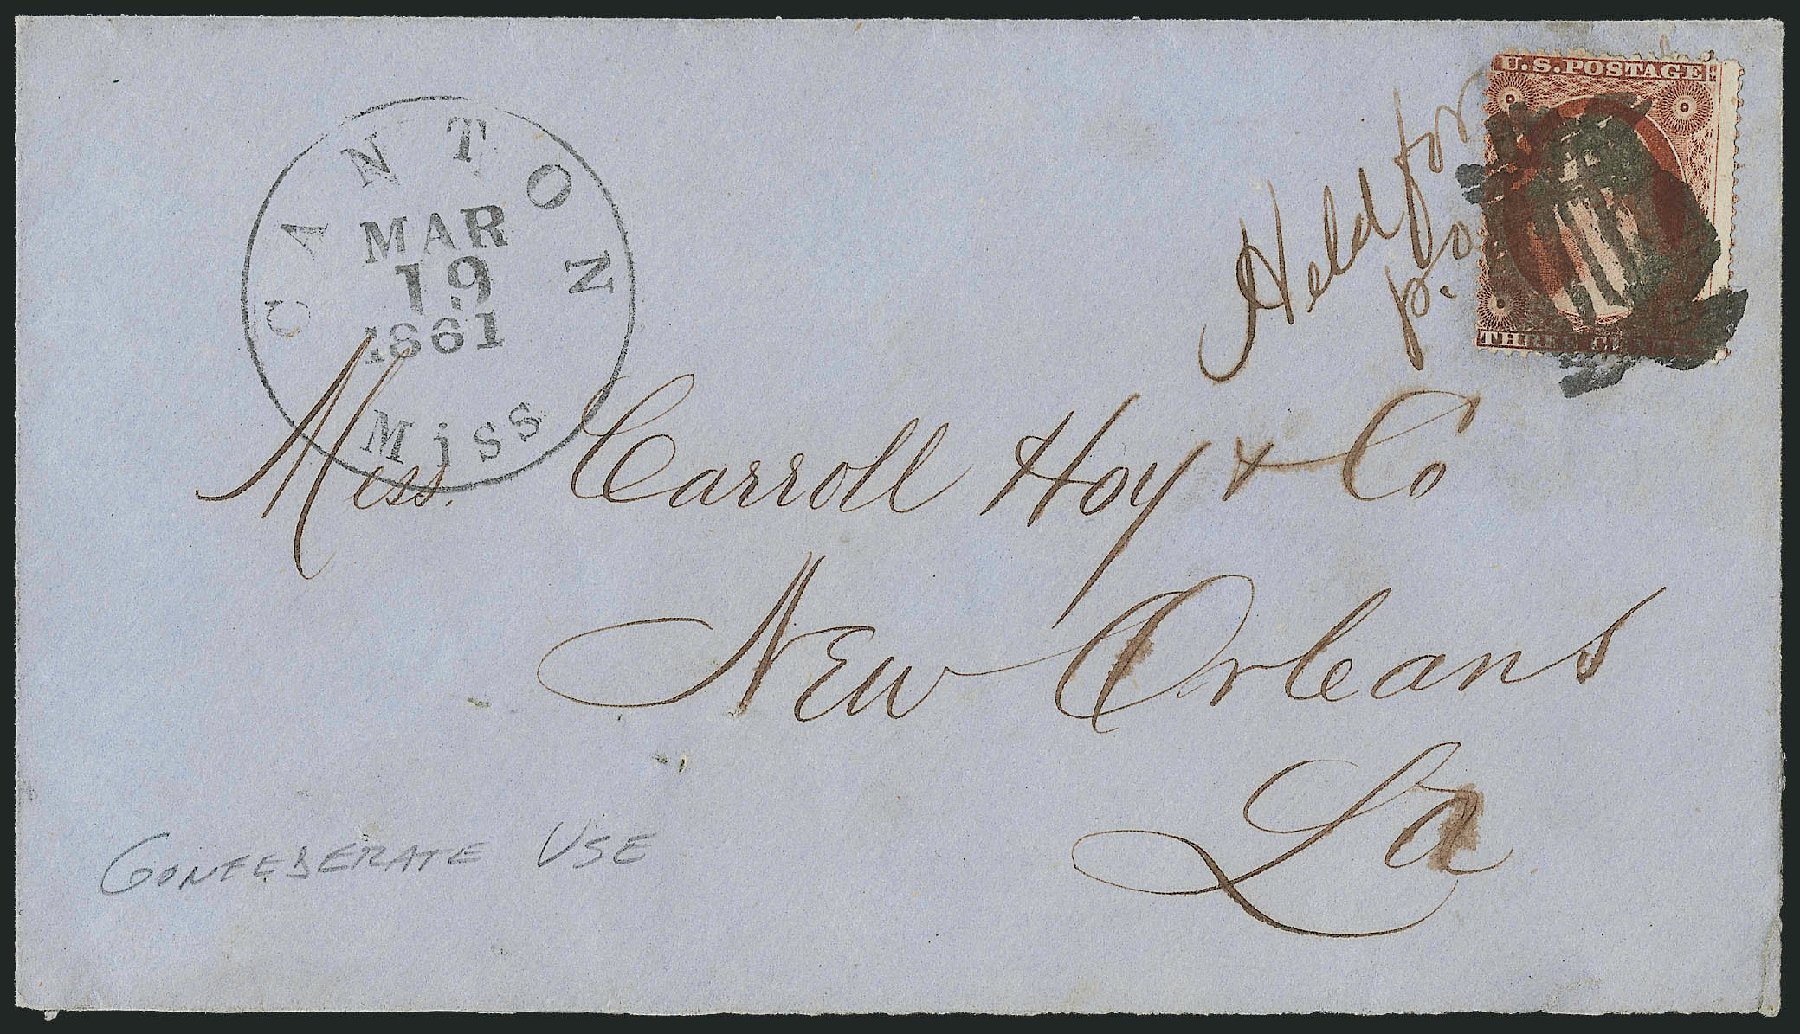 U.S. POSTAGE
CANTON
MAR
19
1861
Miss
Held for
p. o
THREE
Miss. Carroll Hoy & Co
New Orleans
La
CONFEDERATE USE